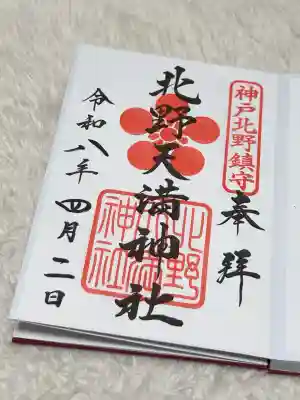 神戸北野鎮守
奉拝
北野天満神社
北野天満神社
令和八年四月二日